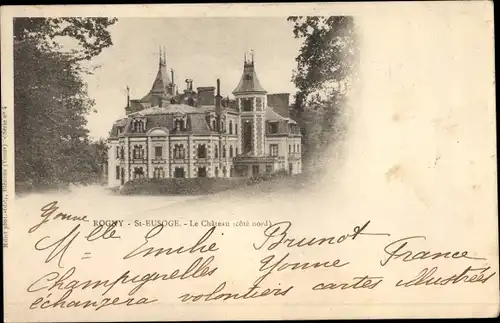 ROGNY - St-EUSOGE. - Le Château (côté nord)
Yonne
Mlle Emilie Brunot
Champignelles Yonne France
échangera volontiers cartes illustrées